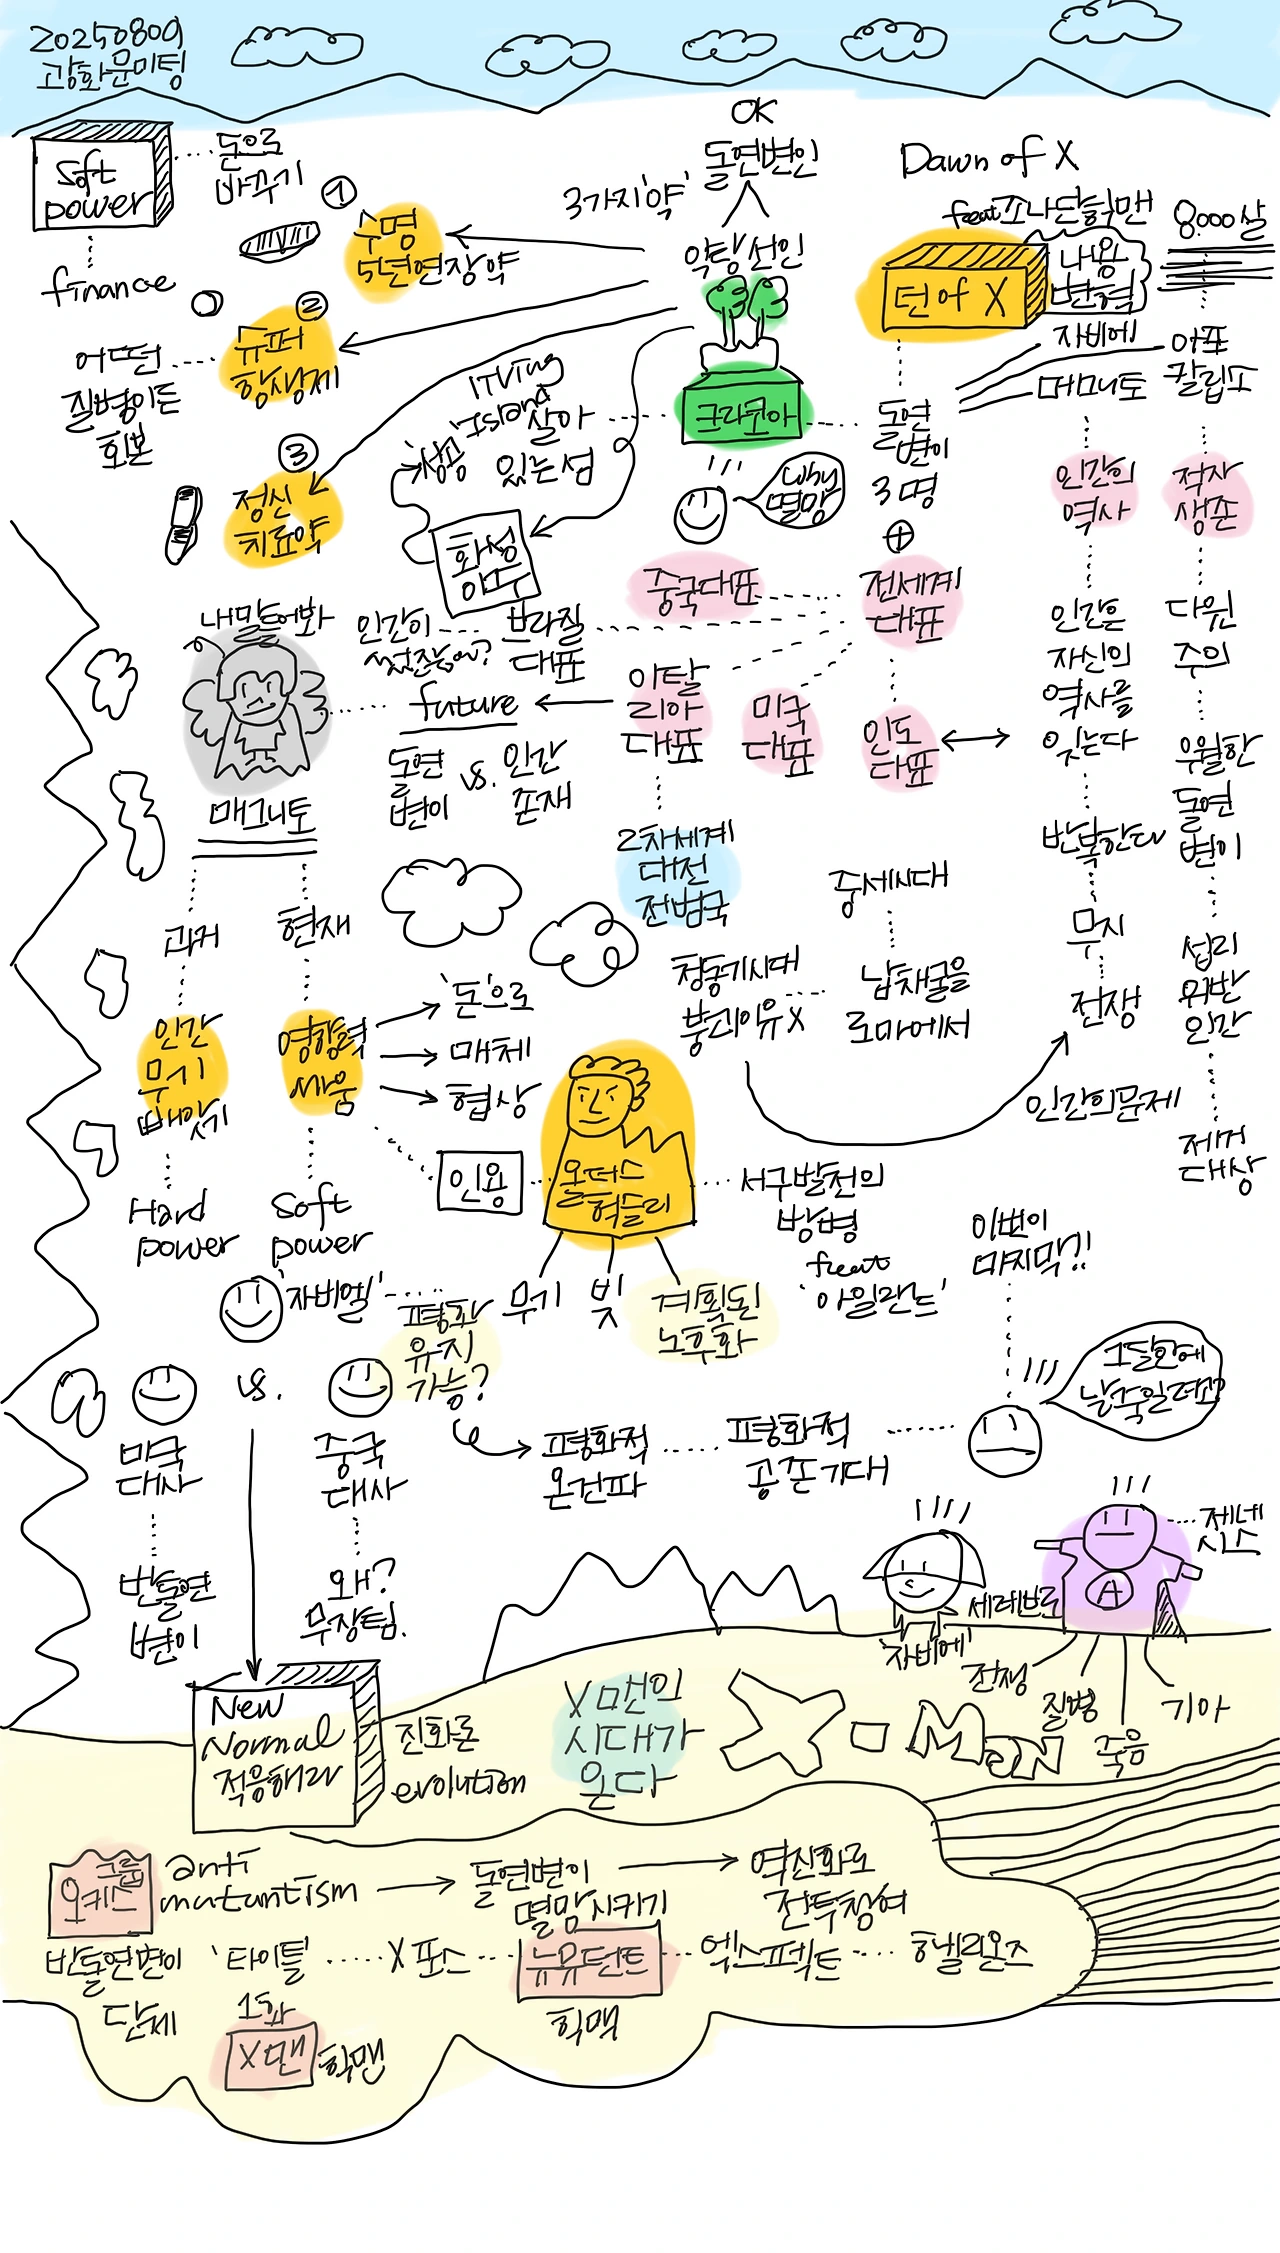 20250809
광화문미팅
Soft
power
돈으로
바꾸기
finance
OK
돌연변인
3가지'약'
약탕선인
Dawn of X
feat 조나단힉맨
8000살
던 어 X
내용
변혁
자비에
메그니토
아포
칼립스
①
수명
5년연장약
②
슈퍼
항생제
어떤
질병이든
회복
③
정신
치료약
living
Island
살아
있는섬
'성공'
크라코아
why
멸망
돌연
변이
3명
화성
이주
인간의
역사
적자
생존
중국대표
전세계
대표
내말들어봐
인간이
브라질
대표
이탈
리아
대표
미국
대표
인도
대표
future
돌연
변이
vs.
인간
존재
인간은
자신의
역사를
잊는다
반복한다
무지
전쟁
인간의문제
다윈
주의
우월한
돌연
변이
섭리
위반
인간
제거
대상
매그니토
2차세계
대전
전범국
중세시대
청동기시대
붕괴이유X
납채굴을
로마에서
과거
현재
인간
무기
뺏앗기
영향력
싸움
'돈'으로
매체
협상
Hard
power
Soft
power
인용
올더스
헉슬리
서구발전의
방병
feat
'아일랜드'
무기
빚
계획된
노후화
'자비엘'
평화
유지
가능?
이번이
마지막?!
vs.
미국
대사
중국
대사
평화적
온건파
평화적
공존기대
그달안에
날죽일려고?
반돌연
변이
왜?
무장팀.
제네
시스
세레브로
'자비에'
A
전쟁
질병
죽음
기아
New
Normal
적응해라
진화론
evolution
X맨의
시대가
온다
X-MeN
그룹
오키스
anti
mutantism
돌연변이
멸망시키기
역진화로
전투참여
반돌연변이
단체
'타이틀'
X포스
뉴뮤턴트
엑스팩트
헬리온즈
1화
X맨
힉맨
힉맥